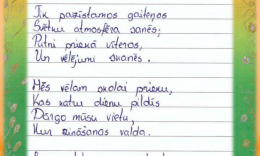 Tik pazīstamos gaiteņos
Svētku atmosfēra sanēs;
Putni priekā vīteros,
Un vēlējumi skanēs.
Mēs vēlam skolai prieku,
Kas katru dienu pildīs
Dārgo mūsu vietu,
Kur zināšanas valda.